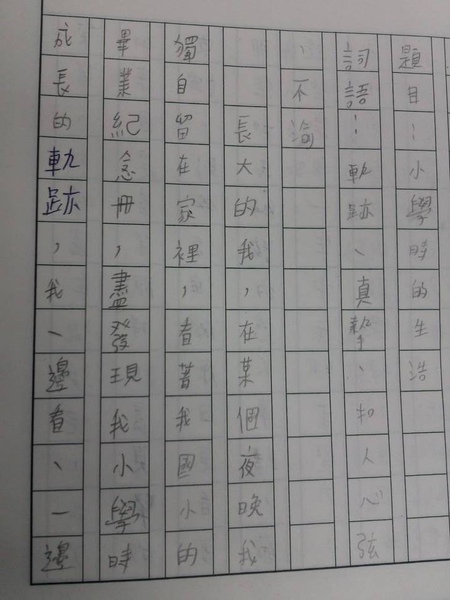 題目：小學時的生活
詞語：軌跡、真摯、扣人心弦
、不論
長大的我，在某個夜晚我
獨自留在家裡，看著我國小的
畢業紀念冊，盡發現我小學時
成長的軌跡，我一邊看、一邊